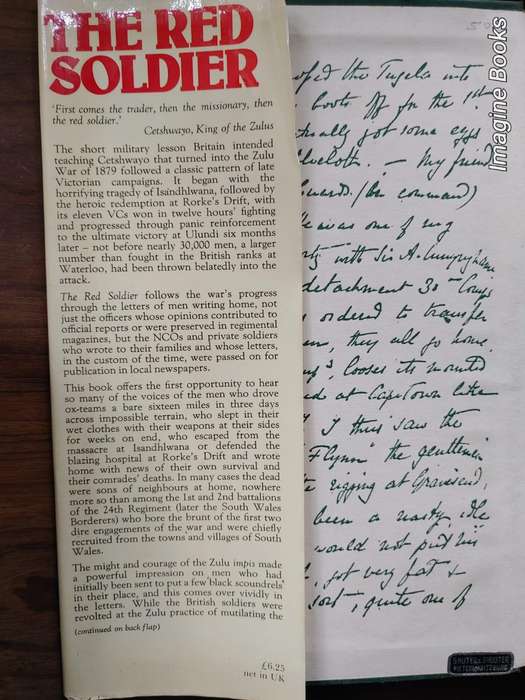 THE RED
SOLDIER
'First comes the trader, then the missionary, then
the red soldier.'
Cetshwayo, King of the Zulus
The short military lesson Britain intended
teaching Cetshwayo that turned into the Zulu
War of 1879 followed a classic pattern of late
Victorian campaigns. It began with the
horrifying tragedy of Isandhlwana, followed by
the heroic redemption at Rorke's Drift, with
its eleven VCs won in twelve hours' fighting
and progressed through panic reinforcement
to the ultimate victory at Ulundi six months
later – not before nearly 30,000 men, a larger
number than fought in the British ranks at
Waterloo, had been thrown belatedly into the
attack.
The Red Soldier follows the war's progress
through the letters of men writing home, not
just the officers whose opinions contributed to
official reports or were preserved in regimental
magazines, but the NCOs and private soldiers
who wrote to their families and whose letters,
in the custom of the time, were passed on for
publication in local newspapers.
This book offers the first opportunity to hear
so many of the voices of the men who drove
ox-teams a bare sixteen miles in three days
across impossible terrain, who slept in their
wet clothes with their weapons at their sides
for weeks on end, who escaped from the
massacre at Isandhlwana or defended the
blazing hospital at Rorke's Drift and wrote
home with news of their own survival and
their comrades' deaths. In many cases the dead
were sons of neighbours at home, nowhere
more so than among the 1st and 2nd battalions
of the 24th Regiment (later the South Wales
Borderers) who bore the brunt of the first two
dire engagements of the war and were chiefly
recruited from the towns and villages of South
Wales.
The might and courage of the Zulu impis made
a powerful impression on men who had
initially been sent to put a few 'black scoundrels'
in their place, and this comes over vividly in
the letters. While the British soldiers were
revolted at the Zulu practice of mutilating the
(continued on back flap)
£6.25
net in UK
Imagine Books
the Tugela into
boots off for the 1st
got some eggs
. – My friend
(in command)
was one of my
with Sir A.
detachment 30
ordered to transfer
, they all go home.
, looses its mounted
at Capetown like
I thus saw the
Flynn the gentleman
rigging at Gravesend,
been a nasty idle
would not put his
, got very fat &
sort, quite one of